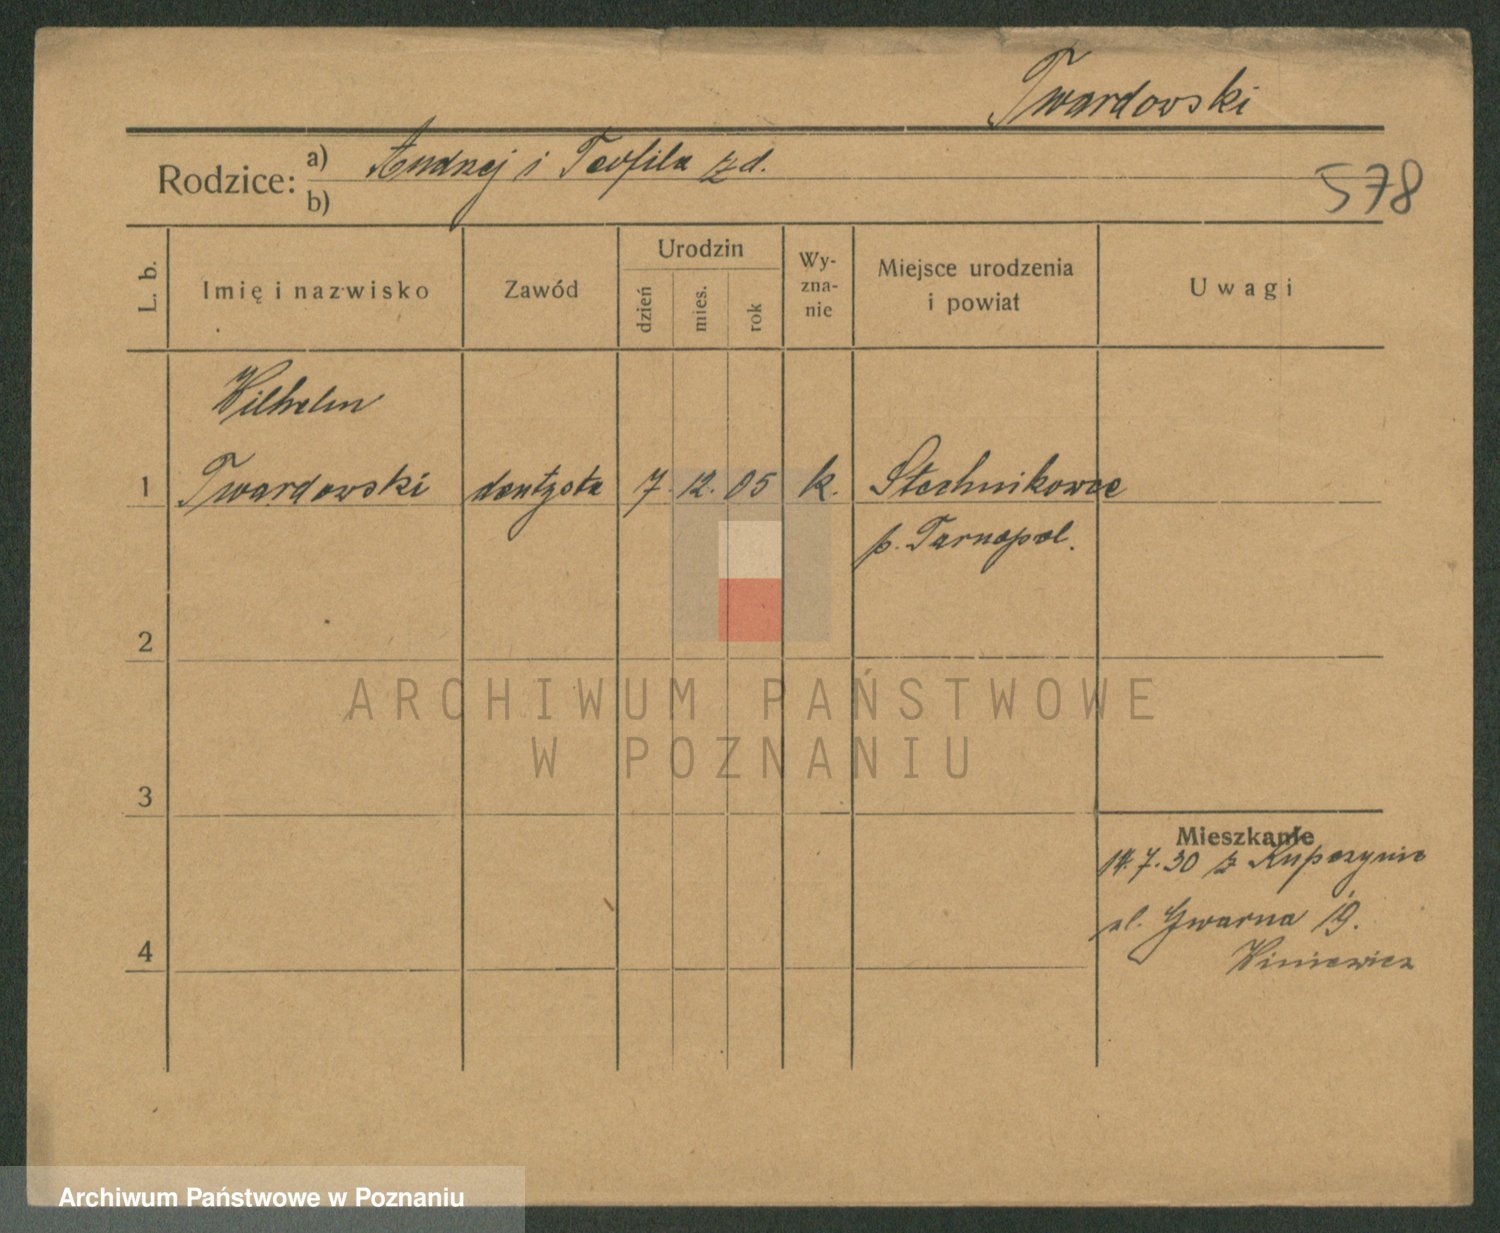 Twardowski
Rodzice: a) Andrzej i Teofila z d.
b)
578
L. b.
Imię i nazwisko
Zawód
Urodzin
dzień
mies.
rok
Wy-
zna-
nie
Miejsce urodzenia
i powiat
Uwagi
Wilhelm
1 Twardowski dentysta 7. 12. 05 k. Stechnikowce
p. Tarnopol.
2
3
4
Mieszkanie
14.7.30 z Kupczynie
ul. Gwarna 19.
Winiewicz
ARCHIWUM PAŃSTWOWE
W POZNANIU
Archiwum Państwowe w Poznaniu